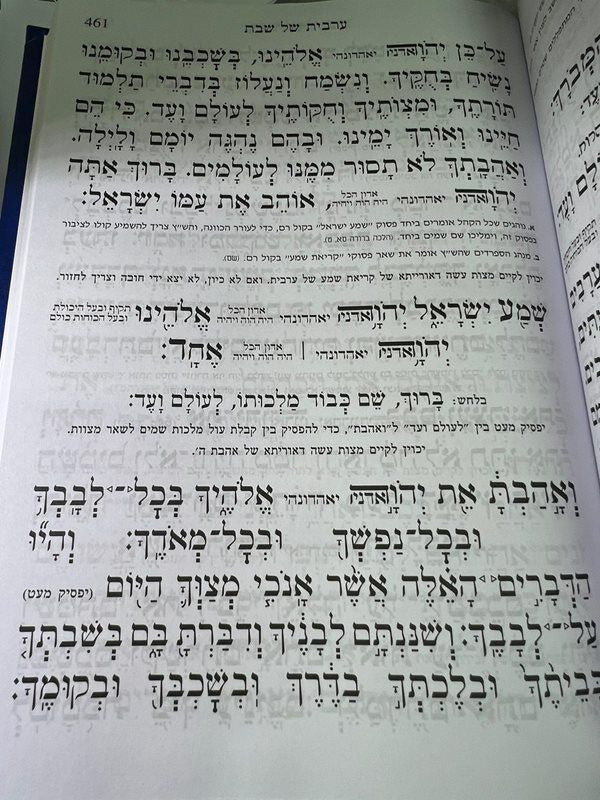 461 ערבית של שבת
עַל־כֵּן יְהֹוָה יאהדונהי אֱלֹהֵינוּ, בְּשָׁכְבֵנוּ וּבְקוּמֵנוּ
נָשִׂיחַ בְּחֻקֶּיךָ. וְנִשְׂמַח וְנַעֲלוֹז בְּדִבְרֵי תַלְמוּד
תּוֹרָתֶךָ, וּמִצְוֹתֶיךָ וְחֻקּוֹתֶיךָ לְעוֹלָם וָעֶד. כִּי הֵם
חַיֵּינוּ וְאוֹרֶךְ יָמֵינוּ. וּבָהֶם נֶהְגֶּה יוֹמָם וָלָיְלָה.
וְאַהֲבָתְךָ לֹא תָסוּר מִמֶּנּוּ לְעוֹלָמִים. בָּרוּךְ אַתָּה
יְהֹוָה יאהדונהי אדון הכל היה הוה ויהיה, אוֹהֵב אֶת עַמּוֹ יִשְׂרָאֵל:
א. נוהגים שכל הקהל אומרים ביחד פסוק "שמע ישראל" בקול רם, כדי לעורר הכוונה, והש"ץ צריך להשמיע קולו לציבור
בפסוק זה, וימליכו שם שמים ביחד.
ב. מנהג הספרדים שהש"ץ אומר את שאר פסוקי "קריאת שמע" בקול רם. (שם).
יכוין לקיים מצות עשה דאורייתא של קריאת שמע של ערבית. ואם לא כיון, לא יצא ידי חובה וצריך לחזור.
שְׁמַע יִשְׂרָאֵל יְהֹוָה יאהדונהי אדון הכל היה הוה ויהיה אֱלֹהֵינוּ תקיף ובעל היכולת ובעל הכוחות כולם
יְהֹוָה יאהדונהי | אדון הכל היה הוה ויהיה אֶחָד:
בלחש: בָּרוּךְ, שֵׁם כְּבוֹד מַלְכוּתוֹ, לְעוֹלָם וָעֶד:
יפסיק מעט בין "לעולם ועד" ל"ואהבת", כדי להפסיק בין קבלת עול מלכות שמים לשאר מצוות.
יכוין לקיים מצות עשה דאורייתא של אהבת ה'.
וְאָהַבְתָּ אֵת יְהֹוָה יאהדונהי אֱלֹהֶיךָ בְּכָל־לְבָבְךָ
וּבְכָל־נַפְשְׁךָ וּבְכָל־מְאֹדֶךָ: וְהָיוּ
הַדְּבָרִים הָאֵלֶּה אֲשֶׁר אָנֹכִי מְצַוְּךָ הַיּוֹם (יפסיק מעט)
עַל־לְבָבֶךָ: וְשִׁנַּנְתָּם לְבָנֶיךָ וְדִבַּרְתָּ בָּם בְּשִׁבְתְּךָ
בְּבֵיתֶךָ וּבְלֶכְתְּךָ בַדֶּרֶךְ וּבְשָׁכְבְּךָ וּבְקוּמֶךָ: